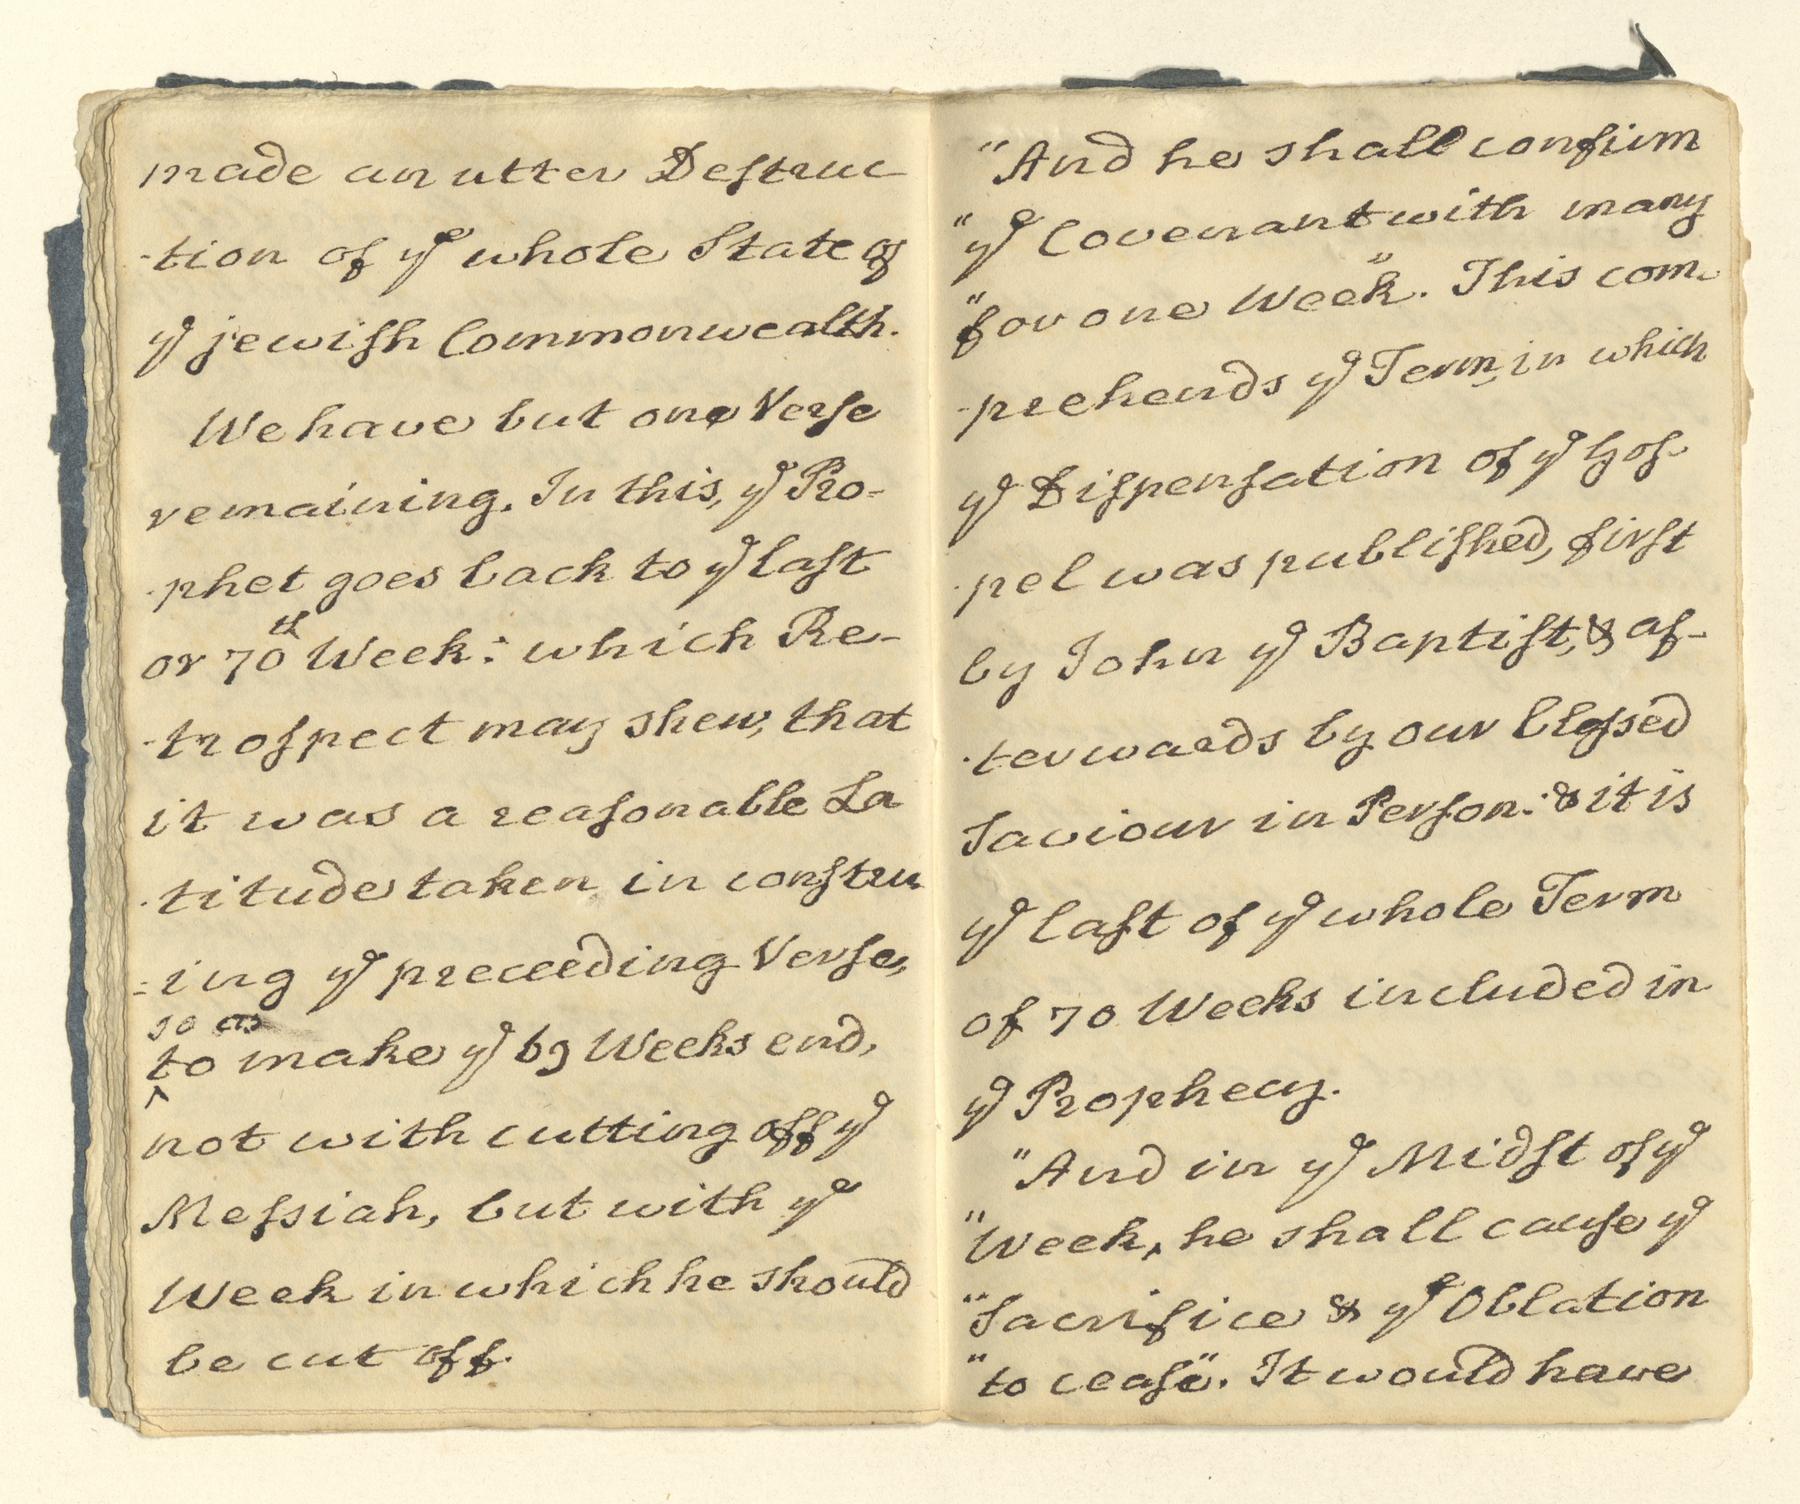 made an utter Destruc
-tion of yᵉ whole State of
yᵉ jewiſh Commonwealth.
We have but one Verſe
remaining. In this, yᵉ Pro-
-phet goes back to yᵉ laſt
or 70th Week: which Re-
-troſpect may shew, that
it was a reaſonable La
-titude taken in conſtru
-ing yᵉ preceeding Verſe,
so as
to make yᵉ 69 Weeks end,
not with cutting off yᵉ
Meſsiah, but with yᵉ
Week in which he should
be cut off.
"And he shall confirm
"yᵉ Covenant with many
"for one Week". This com-
-prehends yᵉ Term, in which
yᵉ Diſpenſation of yᵉ Goſ-
-pel was publiſhed, firſt
by John yᵉ Baptiſt, & af-
-terwards by our bleſsed
Saviour in Perſon: & it is
yᵉ laſt of yᵉ whole Term
of 70 Weeks included in
yᵉ Prophecy.
"And in yᵉ Midſt of yᵉ
"Week, he shall cauſe yᵉ
"Sacrifice & yᵉ Oblation
"to ceaſe". It would have